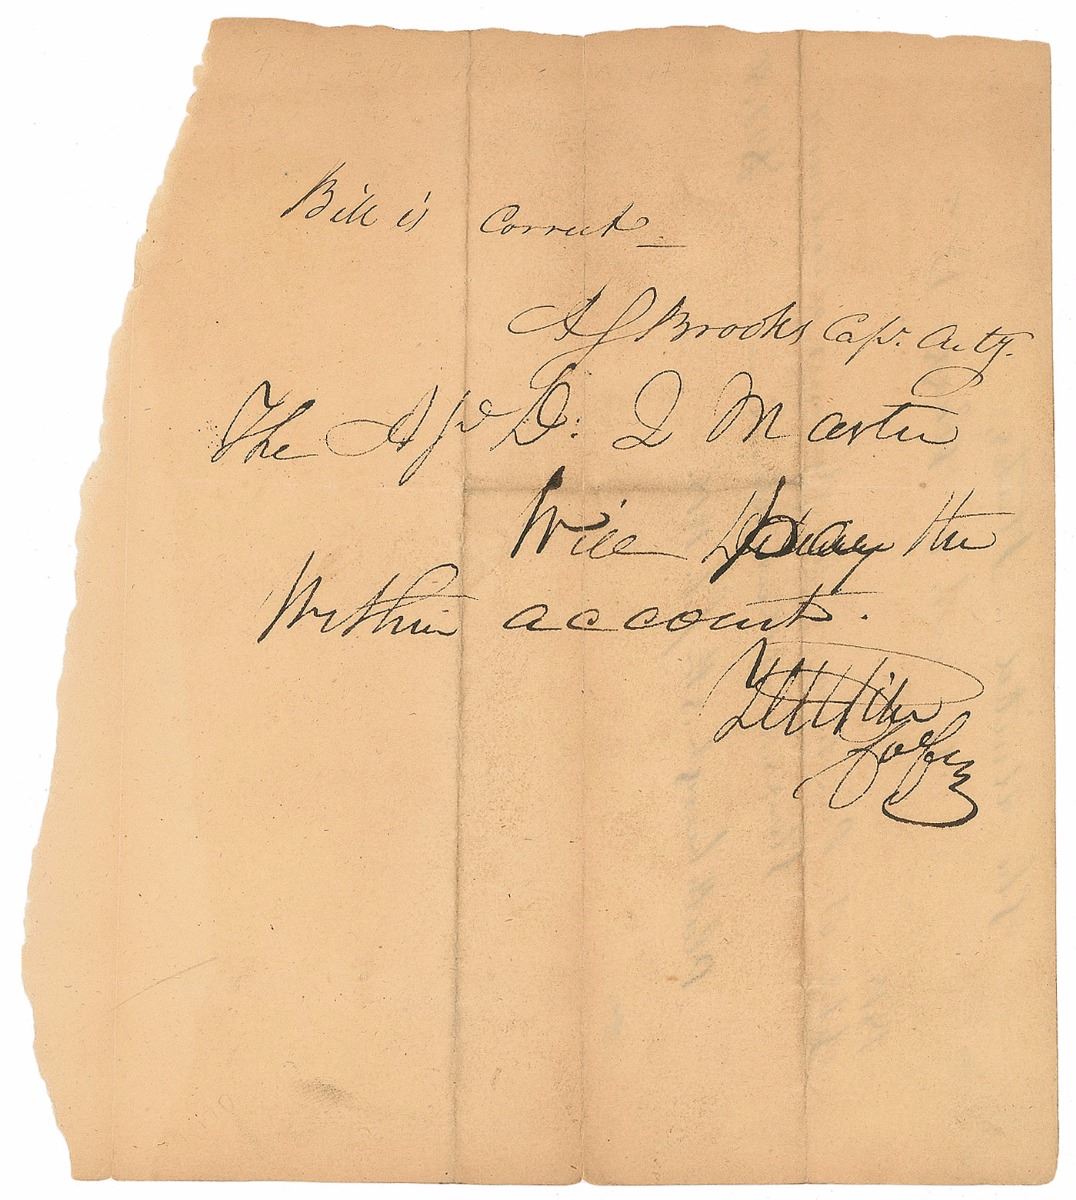 Bill is Correct.
A J Brooks Capt. Arty.
The Ast D: Q Master
Will pay the
Within account.